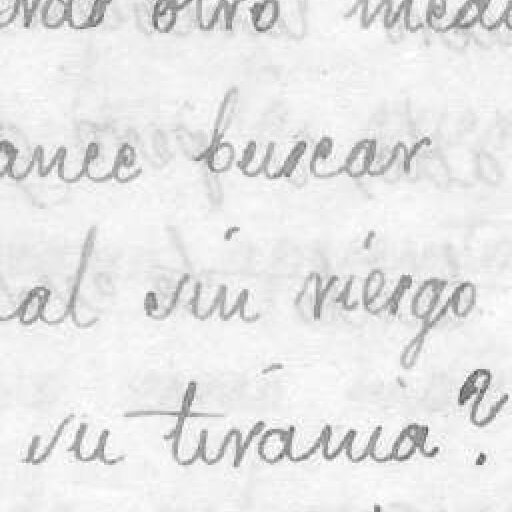 otro
buscar
al sin riesgo
su tiránia?